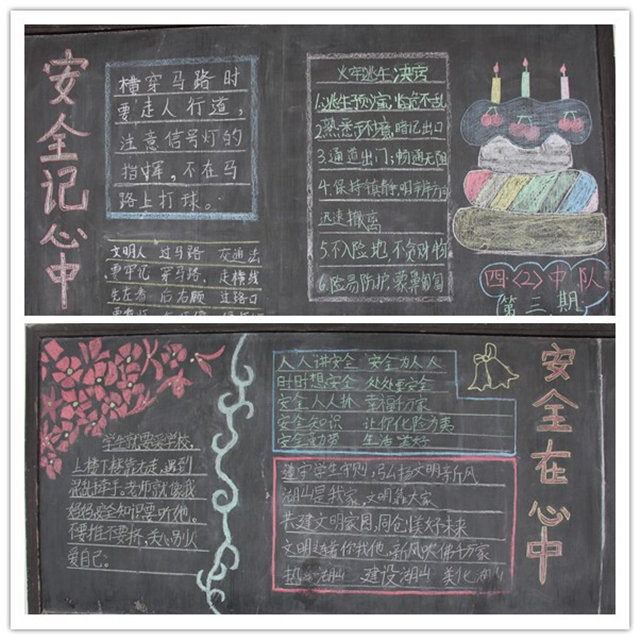 安全记心中
横穿马路时
要走人行道，
注意信号灯的
指挥，不在马
路上打球。
文明人 过马路 交通法
要牢记 穿马路 走横线
先左看 后右顾 过路口
火灾逃生决窍
1.逃生预演，临危不乱
2.熟悉环境，暗记出口
3.通道出门，畅通无阻
4.保持镇静，明辨方向
迅速撤离
5.不入险地，不贪财物
6.简易防护，蒙鼻匍匐
四〈2〉中队
第三期
上楼下楼靠右走，遇到
妈妈安全知识要听他，
爱自己。
人人讲安全 安全为人人
时时想安全 处处要安全
安全人人抓 幸福千万家
安全知识 让你化险为夷
生活美好
遵守学生守则，弘扬文明新风
湖山是我家，文明靠大家
共建文明家园，同创美好未来
建设湖山 美化湖山
安全在心中